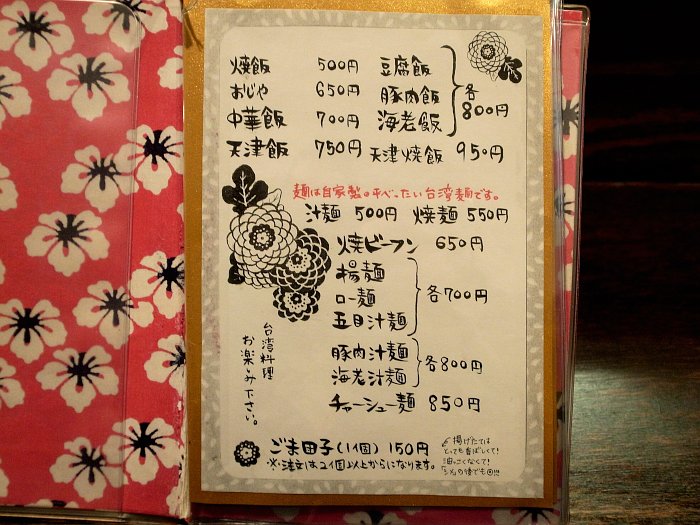 焼飯 500円
おじや 650円
中華飯 700円
天津飯 750円
豆腐飯
豚肉飯
海老飯
各800円
天津焼飯 950円
麺は自家製。平べったい台湾麺です。
汁麺 500円 焼麺 550円
焼ビーフン 650円
揚麺
ロー麺
五目汁麺
各700円
豚肉汁麺
海老汁麺
各800円
チャーシュー麺 850円
台湾料理
お楽しみ下さい。
ごま団子(1個) 150円
※注文は2個以上からになります。
揚げたては
とっても香ばしくて!
油っこくなくて!